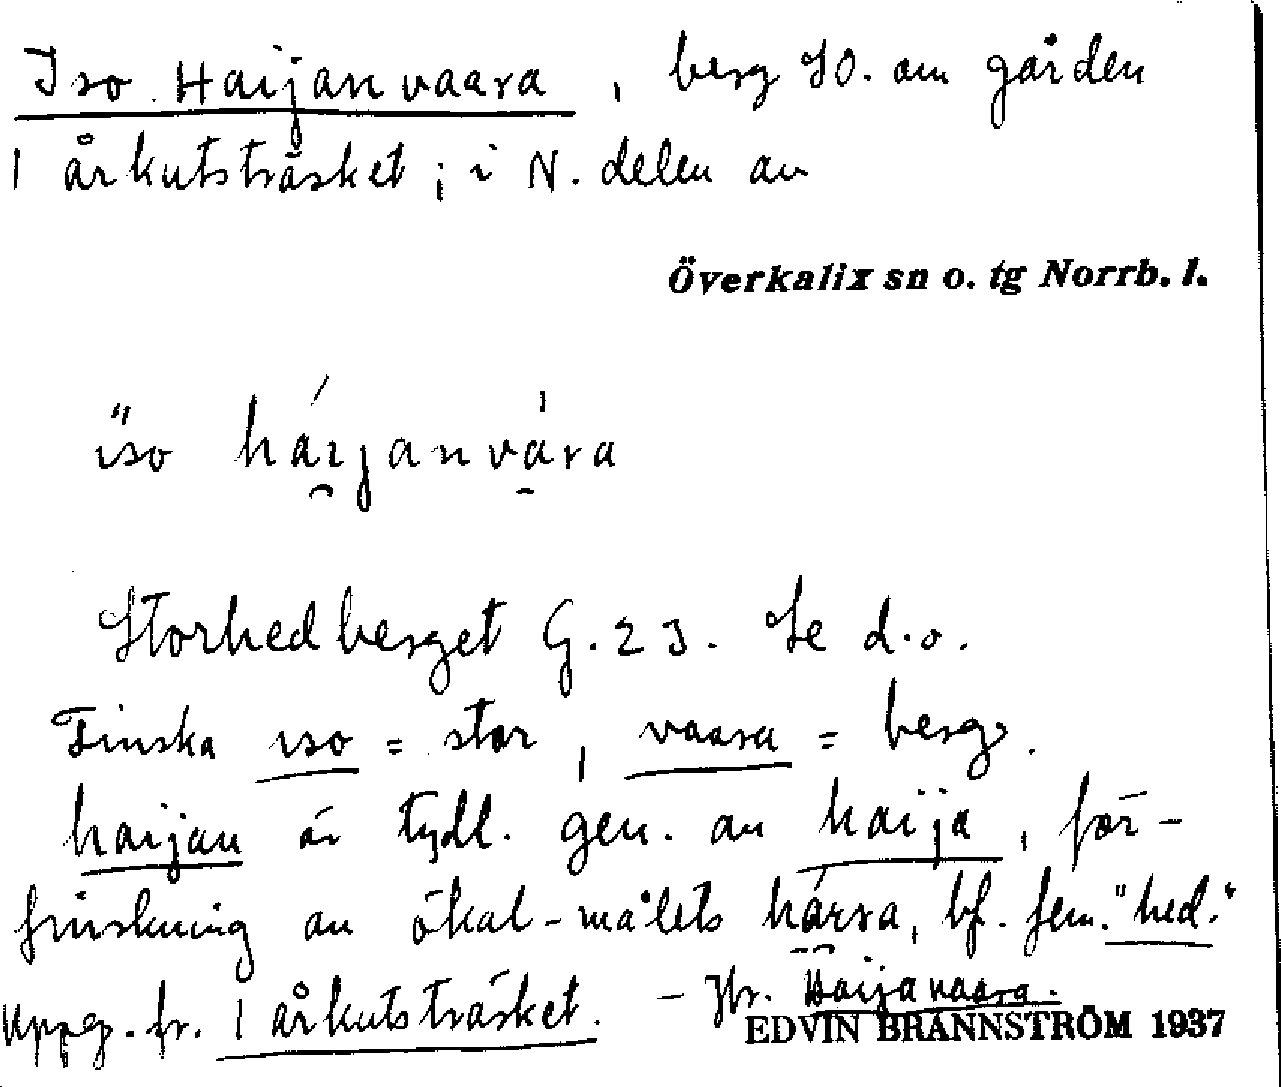 Iso Haijanvaara, berg SO. om gården
1 årkutsträsket; i N. delen av
Överkalix sn o. tg Norrb. l.
iso háijanvára
Storhedberget G. 23. Se d.o.
Finska iso = stor, vaara = berg.
haijan är tydl. gen. av haija, för-
finskning av ökal-målets
bf. fem. "hed."
Uppg. fr. 1 årkutsträsket. – Jfr. Haijavaara.
EDVIN BRÄNNSTRÖM 1937